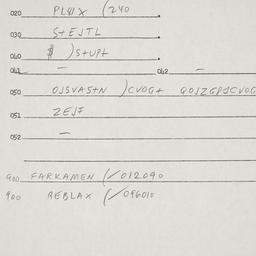 020 PLUX (240
030 STEJTL
040 $ )STUPT
041 — 042 —
050 OJSVASTN )CVOGT QOJZGPJCVOG
051 ZEJF
052 —
900 FARKAMEN (/012090
900 AEBLAX (/096010